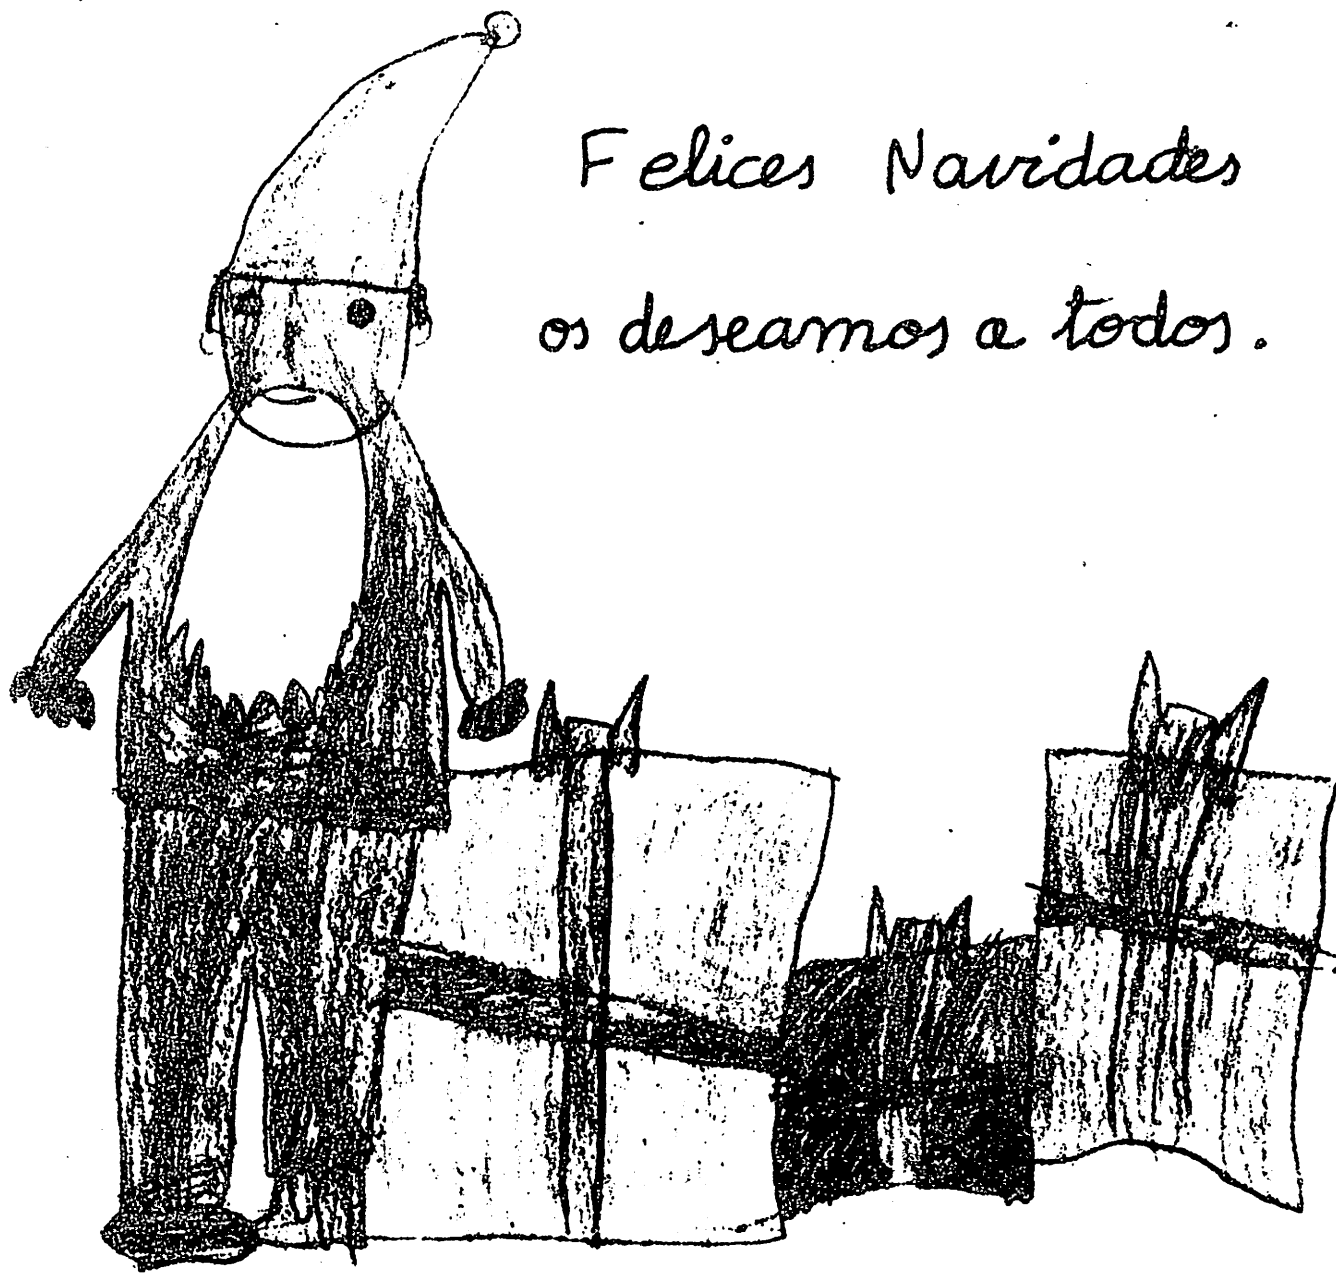 Felices Navidades
os deseamos a todos.